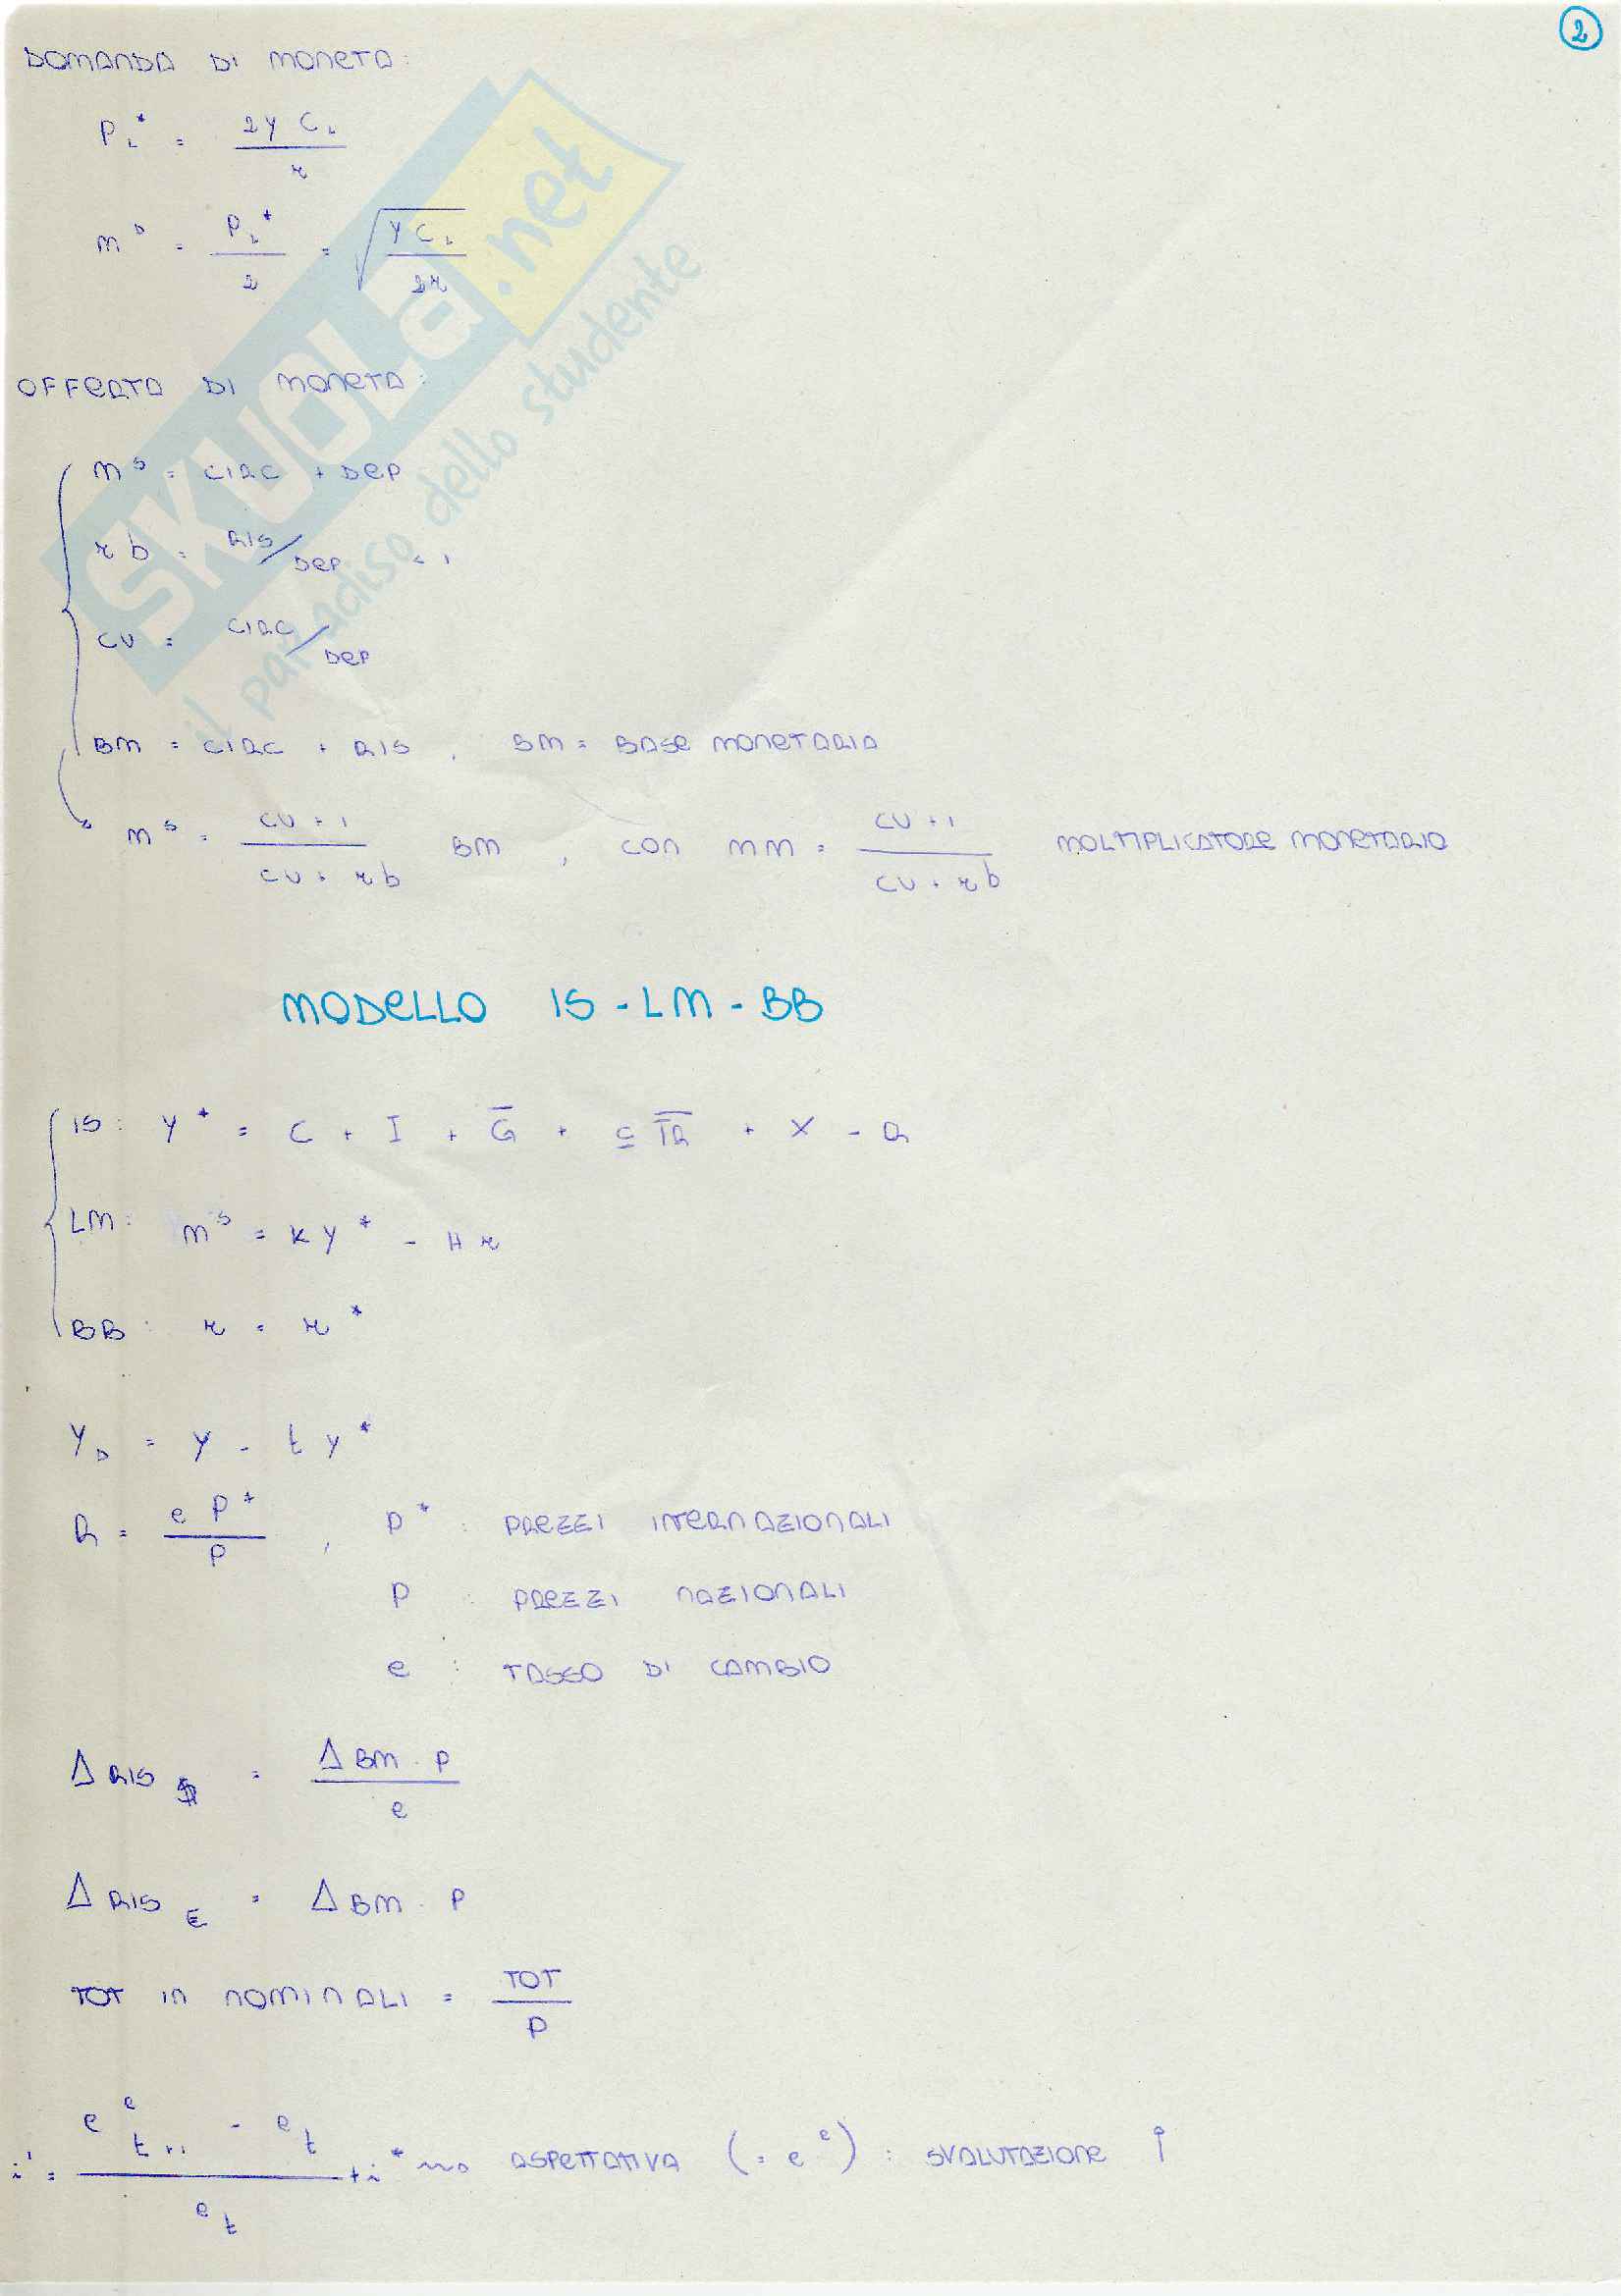 2
DOMANDA DI MONETA:
P_L* = 2Y C_L / r
M^D = P_L* / 2 = √(Y C_L / 2r)
OFFERTA DI MONETA:
M^S = CIRC + DEP
rb = RIS/DEP < 1
CU = CIRC/DEP
BM = CIRC + RIS , BM = BASE MONETARIA
M^S = (CU + 1) / (CU + rb) BM , CON MM = (CU + 1) / (CU + rb) MOLTIPLICATORE MONETARIO
MODELLO IS - LM - BB
IS: Y* = C + I + G̅ + c T̅R̅ + X - R
LM: M^S = KY* - Hr
BB: r = r*
Y_D = Y - tY*
R = e P* / P , P* : PREZZI INTERNAZIONALI
P : PREZZI NAZIONALI
e : TASSO DI CAMBIO
Δ RIS $ = Δ BM · P / e
Δ RIS € = Δ BM · P
TOT IN NOMINALI = TOT / P
i = (e^e_{t+1} - e_t) / e_t + i* ASPETTATIVA (= e^e) : SVALUTAZIONE ↑
SKUOLA.net
il paradiso dello studente